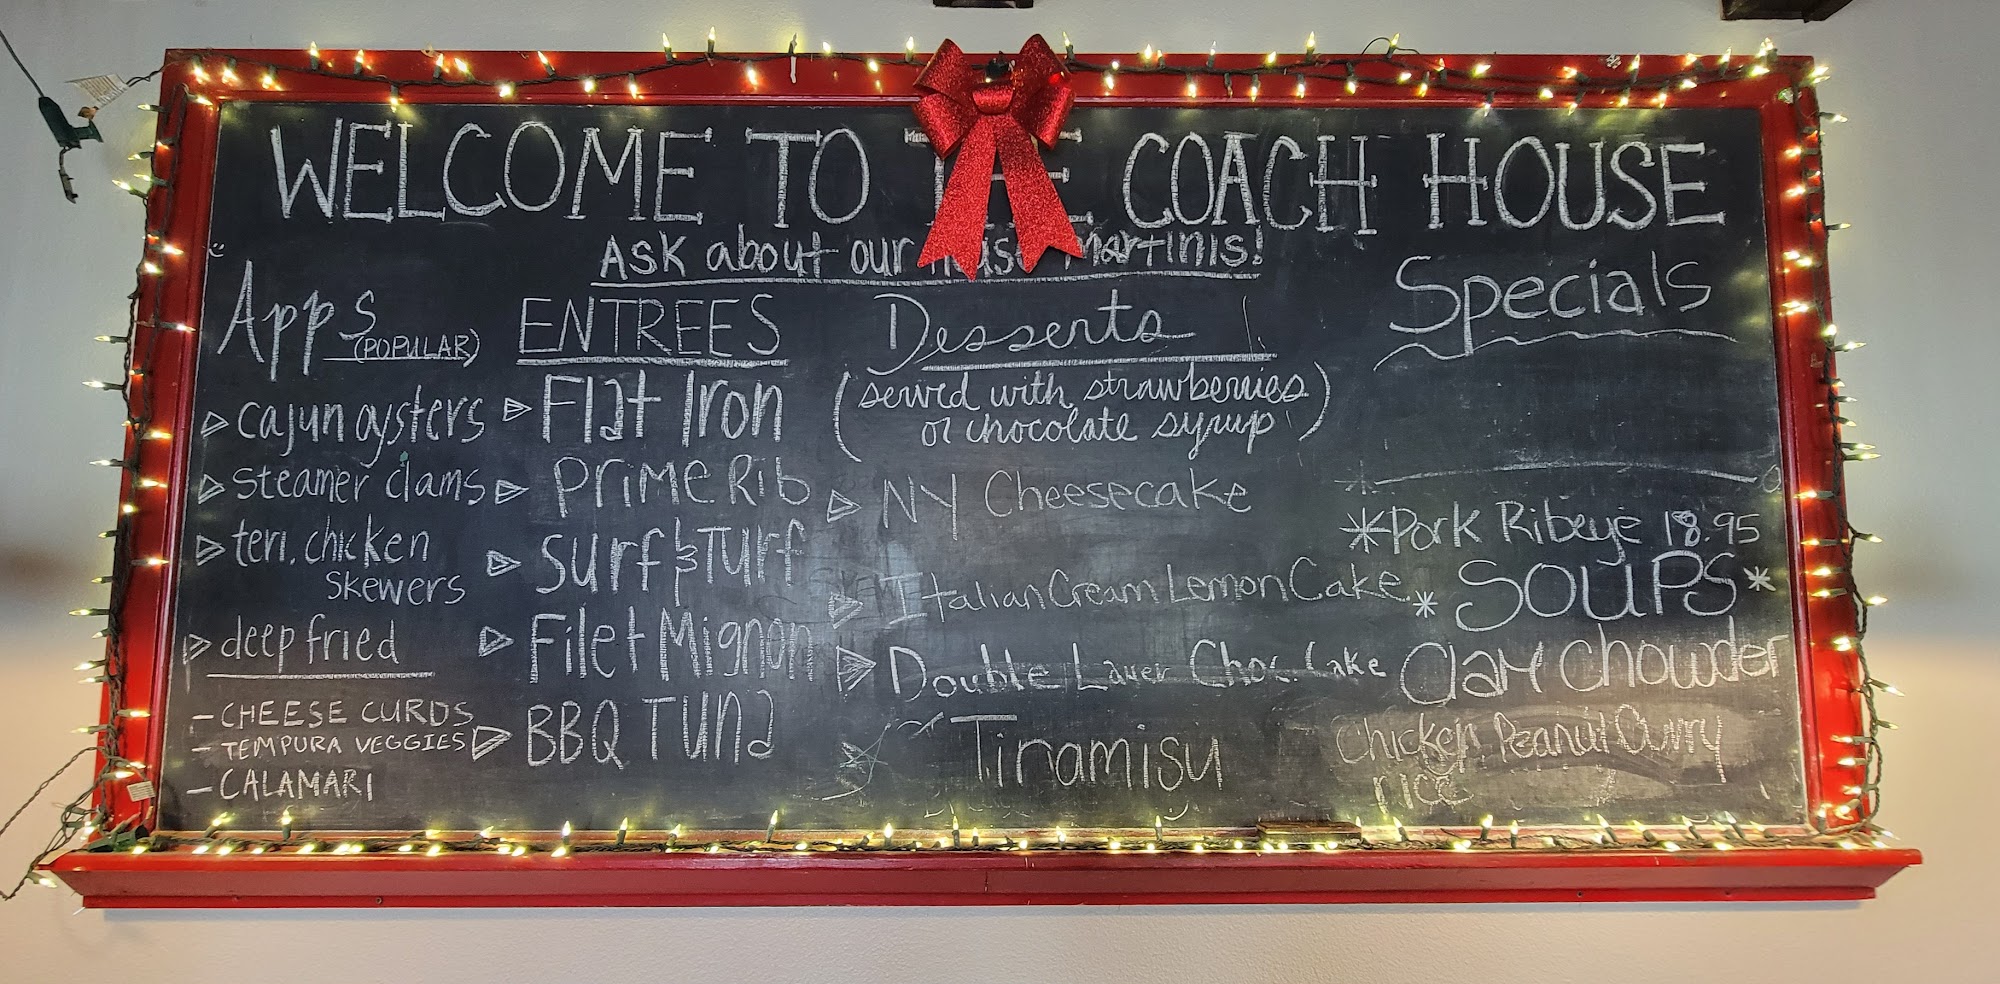 WELCOME TO THE COACH HOUSE
ASK about our house martinis!
Apps
(POPULAR)
cajun oysters
steamer clams
teri. chicken
skewers
deep fried
- CHEESE CURDS
- TEMPURA VEGGIES
- CALAMARI
ENTREES
Flat Iron
Prime Rib
Surf & Turf
Filet Mignon
BBQ Tuna
Desserts
(served with strawberries
or chocolate syrup)
NY Cheesecake
Italian Cream Lemon Cake
Double Layer Choc. Cake
Tiramisu
Specials
*Pork Ribeye 18.95
* SOUPS *
Clam Chowder
Chicken Peanut Curry
rice